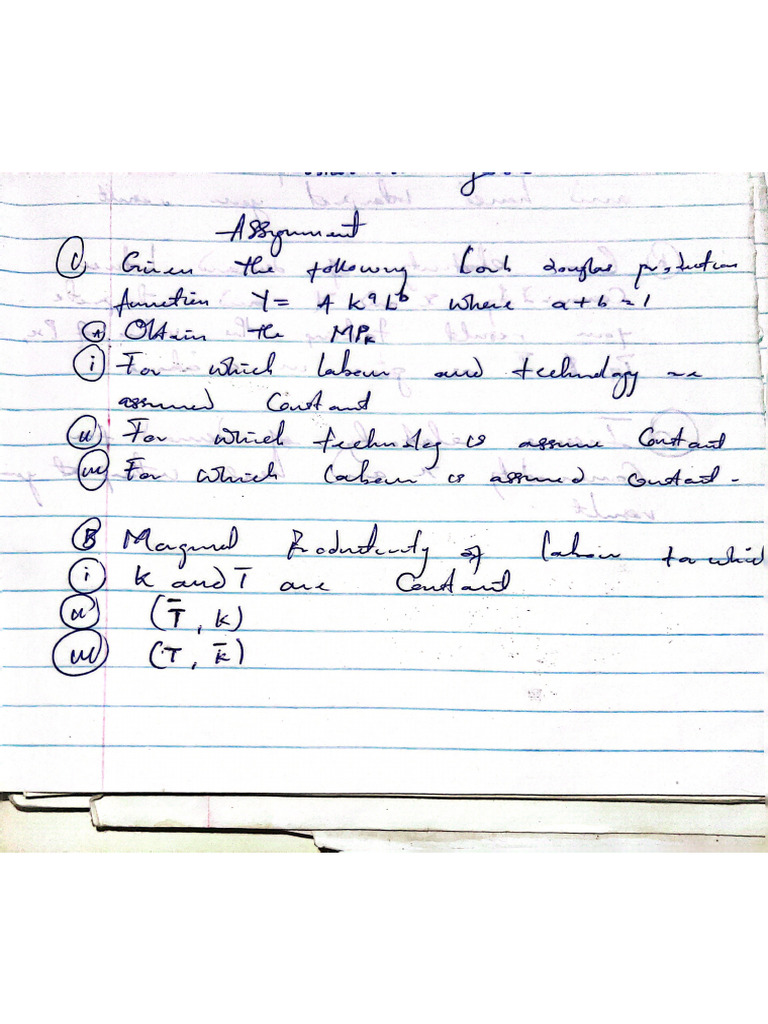 Assignment
① Given the following Cob douglas production
function Y = A K^a L^b where a + b = 1
Ⓐ Obtain the MPk
ⓘ For which labour and technology are
assumed Constant
ⓘⓘ For which technology is assume Constant
ⓘⓘⓘ For which Labour is assumed constant.
Ⓑ Marginal Productivity of labour for which
ⓘ K and T are Constant
ⓘⓘ (T̄, K)
ⓘⓘⓘ (T, K̄)